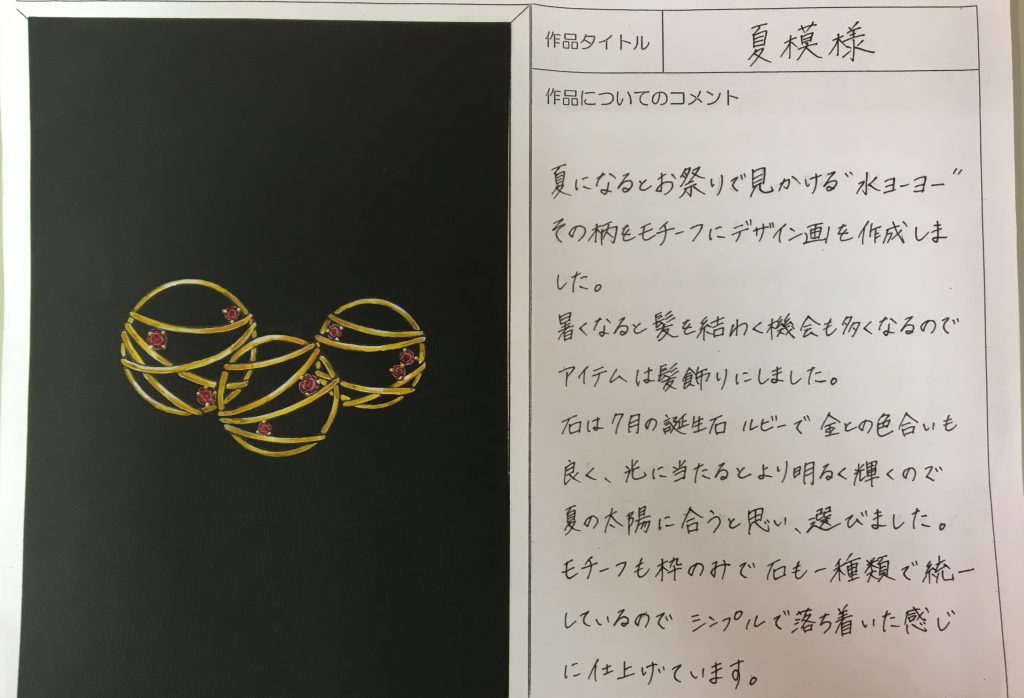 作品タイトル
夏模様
作品についてのコメント
夏になるとお祭りで見かける"水ヨーヨー"
その柄をモチーフにデザイン画を作成しま
した。
暑くなると髪を結わく機会も多くなるので
アイテムは髪飾りにしました。
石は7月の誕生石 ルビーで 金との色合いも
良く、光に当たるとより明るく輝くので
夏の太陽に合うと思い、選びました。
モチーフも枠のみで石も一種類で統一
しているので シンプルで落ち着いた感じ
に仕上げています。